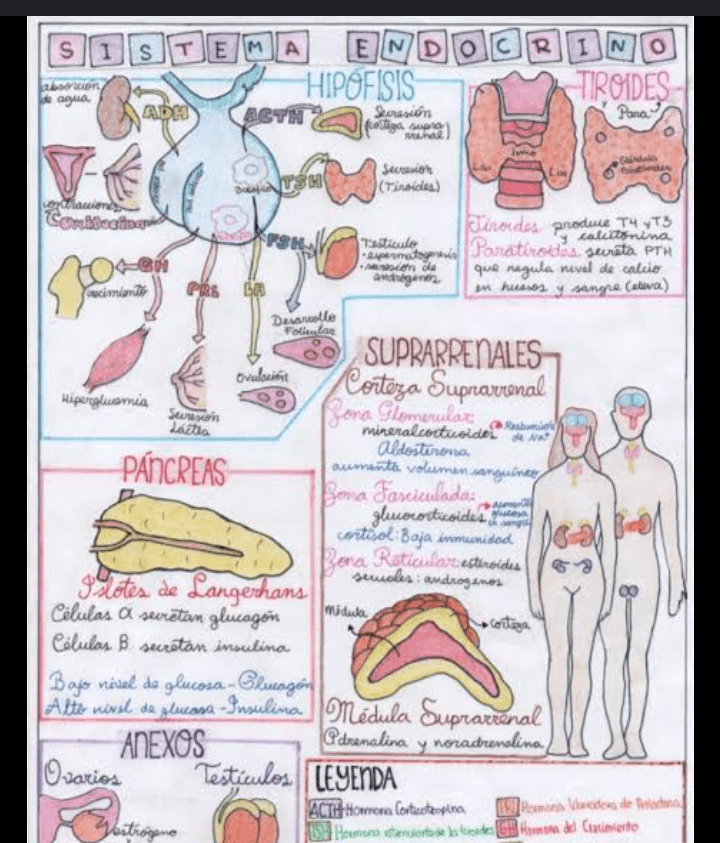 SISTEMA ENDOCRINO
HIPÓFISIS
absorción
de agua
ADH
ACTH
Secresión
(corteza supra
rrenal)
TSH
Secresion
(Tiroides)
contracciones
FSH
Testículo
• espermatogenesis
• secresión de
andrógenos
GH
crecimiento
PRL
LH
Desarrollo
Folicular
Hiperglucemia
Secresión
Láctea
Ovulación
TIROIDES
Para
Glándula
Tiroides produce T4 y T3
y calcitonina
Paratiroides secreta PTH
que regula nivel de calcio
en huesos y sangre (eleva)
SUPRARRENALES
Corteza Suprarrenal
Zona Glomerular:
mineralcorticoides
de Na+
Aldosterona
aumenta volumen sanguíneo
Zona Fasciculada:
glucocorticoides
aumenta
glucosa
en sangre
cortisol: Baja inmunidad
Zona Reticular: esteroides
sexuales: androgenos
médula
corteza
Médula Suprarrenal
Adrenalina y noradrenalina
PÁNCREAS
Islotes de Langerhans
Células α secretan glucagón
Células B secretan insulina
Bajo nivel de glucosa - Glucagón
Alto nivel de glucosa - Insulina
ANEXOS
Ovarios
Testículos
estrógeno
LEYENDA
ACTH Hormona Corticotropina
PRL Hormona
TSH Hormona estimulante de la tiroides
GH Hormona del Crecimiento